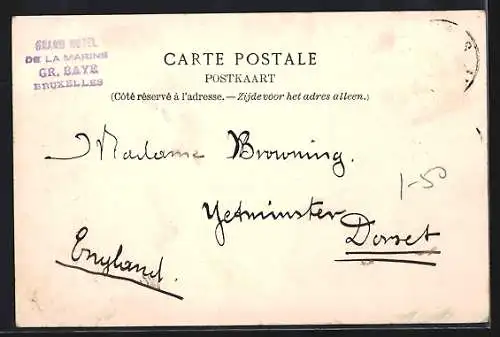 GRAND HOTEL
DE LA MARINE
GR. BAYE
BRUXELLES
CARTE POSTALE
POSTKAART
(Côté réservé à l'adresse. — Zijde voor het adres alleen.)
Madame Browning.
Yetminster
Dorset
England.
1-50